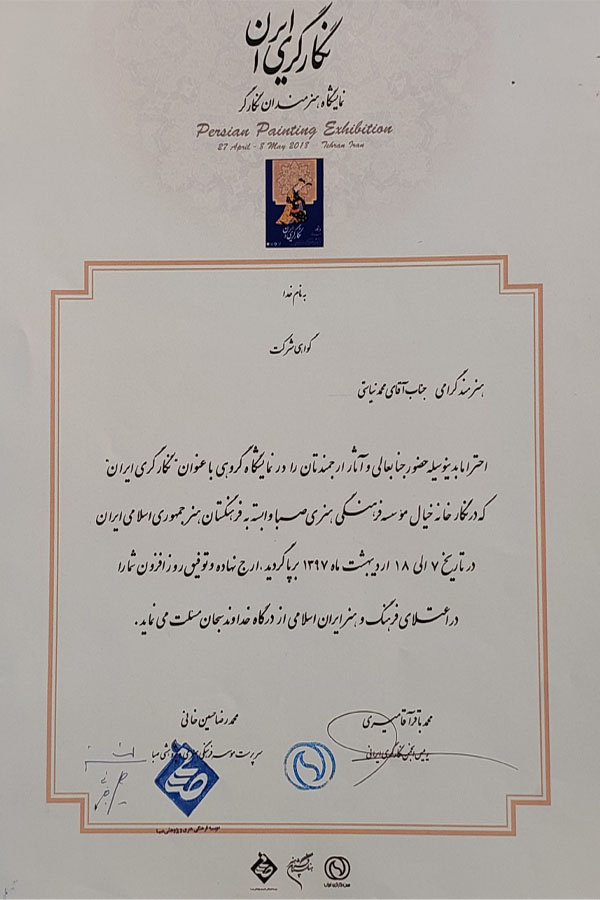 نگارگری ایران
نمایشگاه هنرمندان نگارگر
Persian Painting Exhibition
27 April - 8 May 2018 Tehran Iran
به نام خدا
گواهی شرکت
هنرمند گرامی جناب آقای محمد نیاستی
احتراما بدینوسیله حضور جنابعالی و آثار ارجمندتان را در نمایشگاه گروهی با عنوان "نگارگری ایران"
که در نگارخانه خیال مؤسسه فرهنگی هنری صبا وابسته به فرهنگستان هنر جمهوری اسلامی ایران
در تاریخ ۷ الی ۱۸ اردیبهشت ماه ۱۳۹۷ برپا گردید، ارج نهاده و توفیق روزافزون شما را
در اعتلای فرهنگ و هنر ایران اسلامی از درگاه خداوند سبحان مسئلت می نماید.
محمدباقر آقامیری
محمدرضا حسین خانی
رئیس انجمن نگارگری ایرانی
سرپرست موسسه فرهنگی هنری و پژوهشی صبا
موسسه فرهنگی هنری و پژوهشی صبا